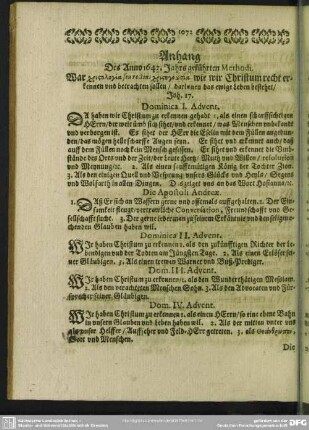 1072
Anhang
Des Anno 1642. Jahrs geführten Methodi.
War χριστολογία seu rectius χριστογνωσία wie wir Christum recht er-
kennen und betrachten sollen / darinnen das ewige Leben bestehet /
Joh. 17.
Dominica I. Advent.
DA haben wir Christum zu erkennen gehabt 1. als einen scharffsichtigen
HErrn / der weit umb sich sihet / und erkennet / was Menschen unbekandt
und verborgen ist. Es sihet der HErr die Eselin mit dem Füllen angebun-
den / das mögen helle scharffe Augen seyn. Er sihet und erkennet auch / daß
auff dem Füllen noch kein Mensch gesessen. Er sihet und erkennet die Umb-
stände des Orts und der Zeit / der Leute Hertz / Muth und Willen /
Meynung / 2. Als einen sanfftmütigen König der Tochter Zion.
3. Als den einigen Quell und Ursprung unsers Glücks und Heyls / Segens
und Wolfarth in allen Dingen. Das zeiget uns an das Wort Hosianna / rc.
Die Apostoli Andreæ.
1. Daß Er sich an Wassern gerne und offtmals auffgehalten. 2. Der Ein-
samkeit vertrauliche Conversation, Freundschafft und Ge-
sellschafft sucht. 3. Der gerne jederman zu seinem Erkäntniß und den selig ma-
chenden Glauben haben wil.
Dominica II. Advent.
WIr haben Christum zu erkennen 1. als den zukünfftigen Richter der Le-
bendigen und der Todten am Jüngsten Tage. 2. Als einen Erlöser sei-
ner Gläubigen. 3. Als einen treuen Warner und Buß-Prediger.
Dom. III. Advent.
WIr haben Christum zu erkennen 1. als den Wunderthätigen Messiam.
2. Als des verachteten Menschen Sohn. 3. Als den Advocaten und Für-
sprecher seiner Gläubigen.
Dom. IV. Advent.
WIr haben Christum zu erkennen 1. als einen HErrn / so eine ebene Bahn
in unserm Glauben und Leben haben wil. 2. Als der mitten unter uns
als unser Helffer / Auffseher und Feld-HErr getreten. 3. als
Gott und Menschen.
Die